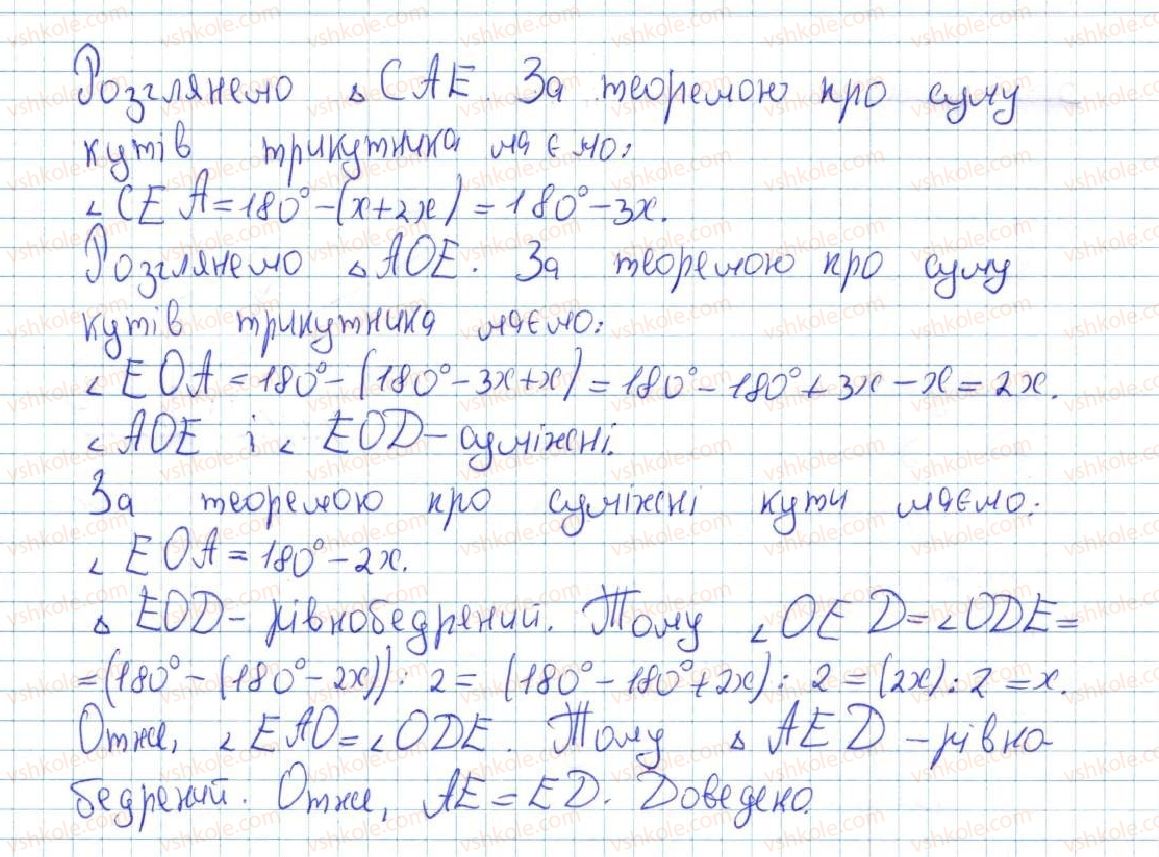 Розглянемо △CAE. За теоремою про суму
кутів трикутника маємо:
∠CEA=180°-(x+2x)=180°-3x.
Розглянемо △AOE. За теоремою про суму
кутів трикутника маємо:
∠EOA=180°-(180°-3x+x)=180°-180°+3x-x=2x.
∠AOE і ∠EOD-суміжні.
За теоремою про суміжні кути маємо:
∠EOA=180°-2x.
△EOD-рівнобедрений. Тому ∠OED=∠ODE=
=(180°-(180°-2x)):2=(180°-180°+2x):2=(2x):2=x.
Отже, ∠EAO=∠ODE. Тому △AED-рівно
бедрений. Отже, AE=ED. Доведено.